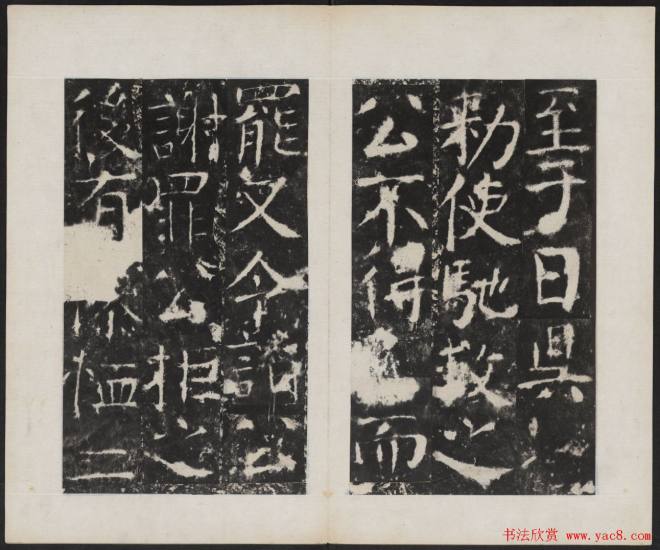 至于日昃上
勅使馳救之
公不得而
罷又令詣公
謝罪公拒之
後有恤二
书法欣赏 www.yac8.com